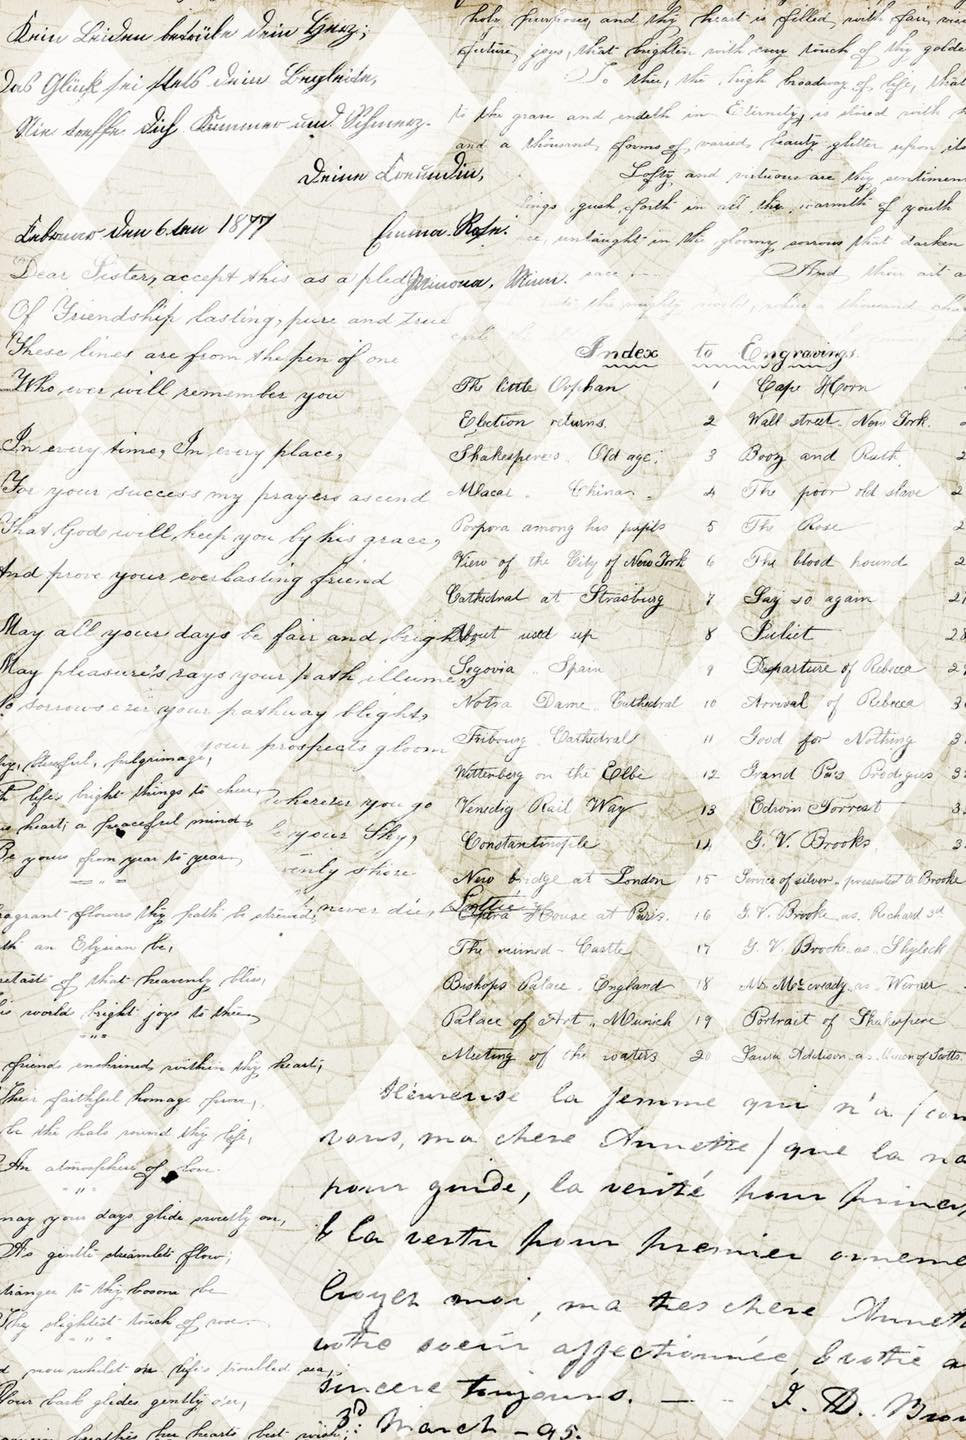 Kein Leiden betrübe dein Herz;
Das Glück sei stets dein Begleiter,
Nie treffe dich Kummer und Schmerz.
Deine Freundin,
Februar den 6ten 1877
Emma Rose.
Winona, Minn.
Dear Sister, accept this as a pled
Of Friendship lasting, pure and true
These lines are from the pen of one
Who ever will remember you
In every time, In every place,
For your success my prayers ascend
That God will keep you by his grace,
And prove your everlasting friend
May all your days be fair and bright,
May pleasure's rays your path illume,
No sorrows e'er your pathway blight,
your prospects gloom
wherever you go
your Sky,
never die, Lottie
holy purposes, and thy heart is filled with fair
future joys, that brighten with every touch of thy golde
To thee, the high broadway of life, that
to the grave and endeth in Eternity, is stored with
and a thousand forms of varied beauty glitter upon its
Lofty and virtuous are thy sentimen
gush forth in all the warmth of youth
untaught in the gloomy sorrows that darken
And thou art
to the mighty world, where a thousand
Index to Engravings.
The little Orphan 1 Cape Horn
Election returns. 2 Wall street. New York.
Shakespere's Old age. 3 Booz and Ruth.
Macao. China. 4 The poor old slave 2
Porpora among his pupils 5 The Rose 2
View of the City of New York 6 The blood hound 2
Cathedral at Strasburg 7 Say so again 2
About used up 8 Juliet 28
Segovia Spain 9 Departure of Rebecca 2
Notra Dame Cathedral 10 Arrival of Rebecca 3
Fribourg Cathedral 11 Good for Nothing 3
Wittenberg on the Elbe 12 Grand Pa's Prodigies 3
Venedig Rail Way 13 Edwin Forrest 3
Constantinople 14 G. V. Brooks 3
New bridge at London 15 Service of silver presented to Brooke
Opera House at Paris. 16 G. V. Brooke as Richard 3d
The ruined Castle 17 G. V. Brooke as Shylock
Bishops Palace England 18 Mr. McCready as Werner
Palace of Art Munich 19 Portrait of Shakespere
Meeting of the waters 20 Laura Addison as Queen of Scotts.
blissful, pilgrimage,
life's bright things to cheer
heart; a peaceful mind
Be yours from year to year
fragrant flowers thy path be strewed,
an Elysian be,
foretaste of that heavenly bliss,
world bright joys to thee
friends enshrined within thy heart,
Their faithful homage prove,
be the halo round thy life,
An atmosphere of love.
may your days glide sweetly on,
As gentle streamlets flow;
stranger to thy bosom be
The slightest touch of woe.
now whilst on life's troubled sea,
Your bark glides gently o'er,
breathes her hearts best wish;
Heureuse la femme qui n'a (com
vous, ma chere Annette) que la na
pour guide, la verité pour princ
& la vertu pour premier orneme
Croyez moi, ma tres chere Annett
votre soeur affectionnée, & votre a
sincere toujours. — J. D. Brow
3d March -95.